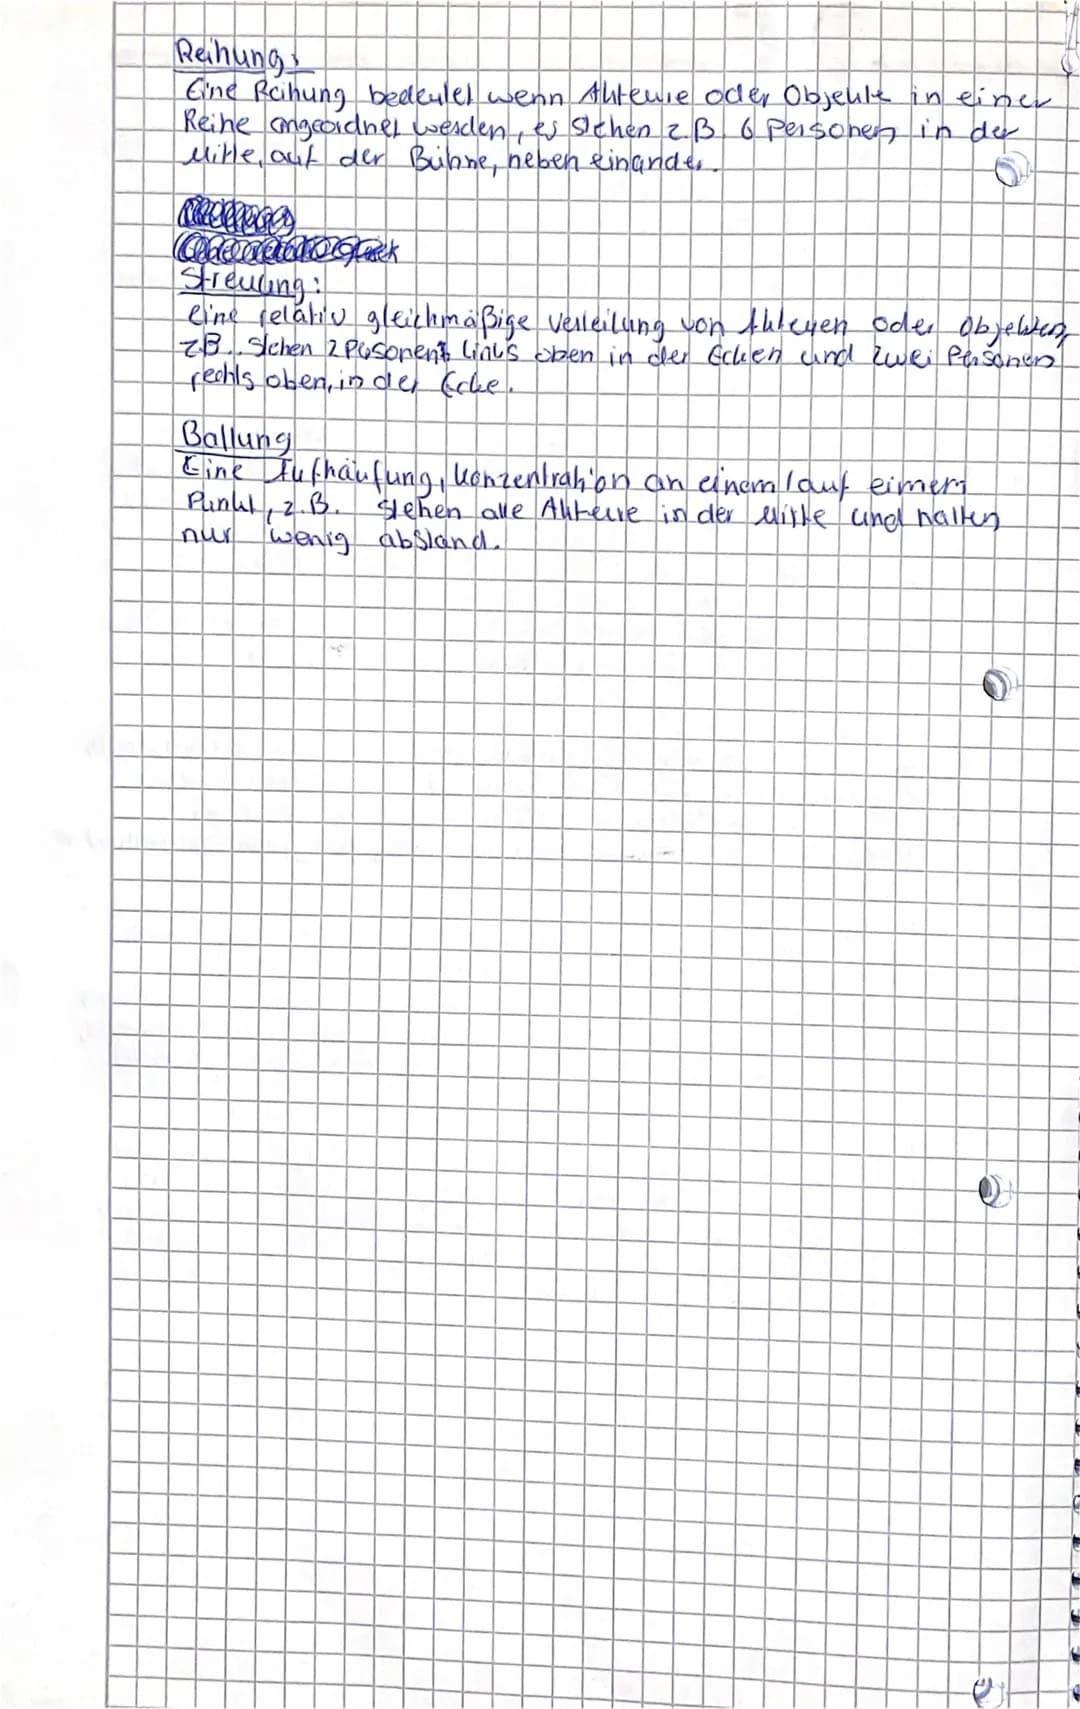 Reihung:
Eine Reihung bedeutet wenn Akteure oder Objekte in einer
Reihe angeordnet werden, es stehen z.B. 6 Personen in der
Mitte, auf der Bühne, neben einander.
Streuung:
eine relativ gleichmäßige Verteilung von Akteuren oder Objekten,
z.B.. stehen 2 Personen links oben in der Ecken und zwei Personen
rechts oben, in der Ecke.
Ballung
Eine Aufhäufung, Konzentration an einem/auf einem
Punkt, z.B. stehen alle Akteure in der Mitte und halten
nur wenig abstand.